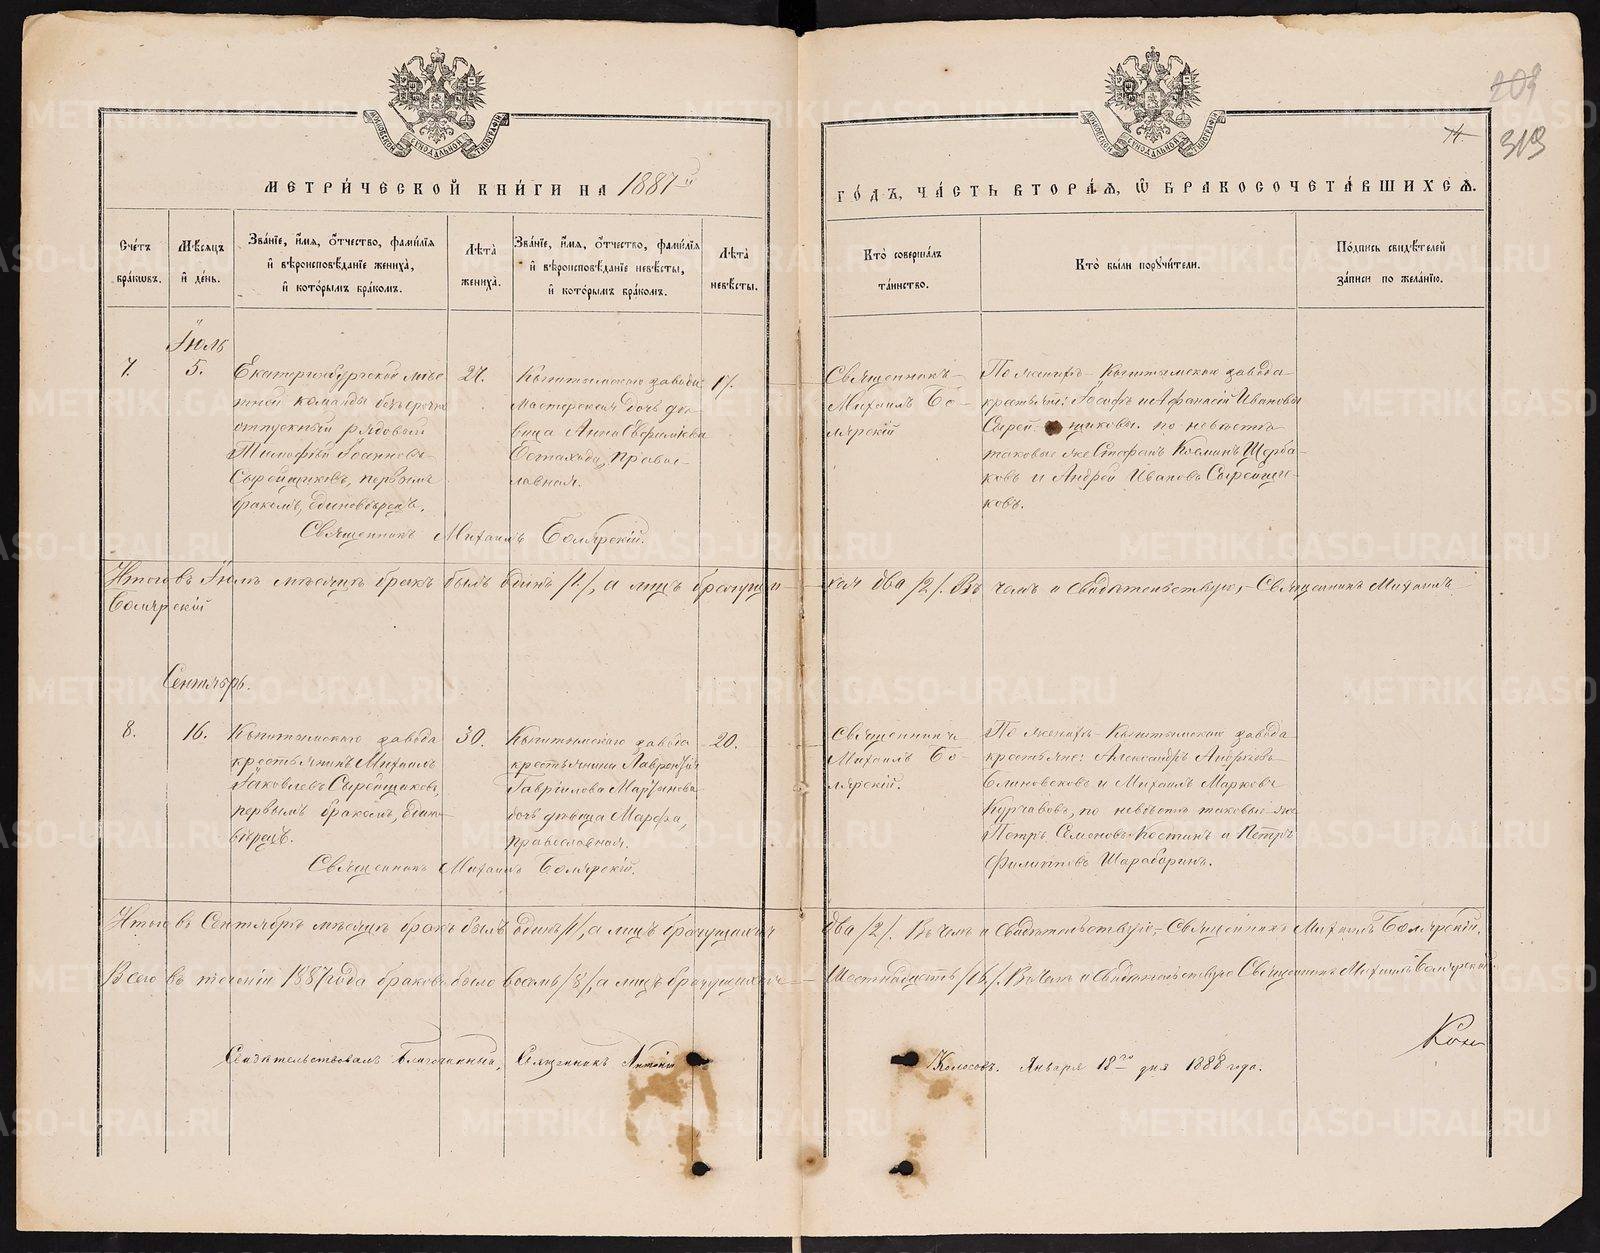 209
14.
313
МЕТРИ́ЧЕСКОЙ КНИ́ГИ НА 1887й
ГО́ДЪ, ЧА́СТЬ ВТОРА́Я, Ѽ БРАКОСОЧЕТА́ВШИХСЯ.
Счетъ браковъ.
Мѣсяцъ и день.
Званіе, имя, отчество, фамилія
и вѣроисповѣданіе жениха,
и которымъ бракомъ.
Лѣта жениха.
Званіе, имя, отчество, фамилія
и вѣроисповѣданіе невѣсты,
и которымъ бракомъ.
Лѣта невѣсты.
Кто совершалъ
таинство.
Кто были поручители.
Подпись свидѣтелей
записи по желанію.
Іюль
7.
5.
Екатеринбургской мѣст
тной команды безсрочно
отпускный рядовый
Тимофѣй Іоанновъ
Сырейщиковъ, первымъ
бракомъ, единовѣрецъ.
27.
Кыштымскаго завода
мастерская дочь дѣ-
вица Анна
правос-
лавная.
17.
Священникъ
Михаилъ Бо-
лярскій
По женихѣ – Кыштымскаго завода
крестьяне: Іосифъ и Афанасій Ивановы
Сырейщиковы. по невѣстѣ
таковые же Стефанъ Козминъ Щерба-
ковъ и Андрей Ивановъ Сырейщи-
ковъ.
Священникъ Михаилъ Болярскій.
Итого въ Іюлѣ мѣсяцѣ бракъ былъ одинъ /1/, а лицъ брачущи-
хся два /2/. Въ чемъ и свидѣтельствую, – Священникъ Михаилъ
Болярскій
Сентябрь.
8.
16.
Кыштымскаго завода
крестьянинъ Михаилъ
Іаковлевъ Сырейщиковъ,
первымъ бракомъ, едино-
вѣрецъ.
30.
Кыштымскаго завода
крестьянина Лаврентія
Гавріилова Мартынова
дочь дѣвица Марфа,
православная.
20.
Священникъ
Михаилъ Бо-
лярскій.
По женихѣ – Кыштымскаго завода
крестьяне: Александръ Андреевъ
Блиновсковъ и Михаилъ Марковъ
Курчавовъ, по невѣстѣ таковые же
Петръ Семеновъ Костинъ и Петръ
Филипповъ Шараборинъ.
Священникъ Михаилъ Болярскій.
Итого въ Сентябрѣ мѣсяцѣ бракъ былъ одинъ /1/, а лицъ брачущихся
два /2/. Въ чемъ и свидѣтельствую, – Священникъ Михаилъ Болярскій.
Всего въ теченіи 1887 года браковъ было восемь /8/, а лицъ брачущихся
шестнадцать /16/. Въ чемъ и свидѣтельствую Священникъ Михаилъ Болярскій.
Свидѣтельствовалъ Благочинный, Священникъ Антоній
Колосовъ. Января 18го дня 1888 года.
METRIKI.GASO-URAL.RU